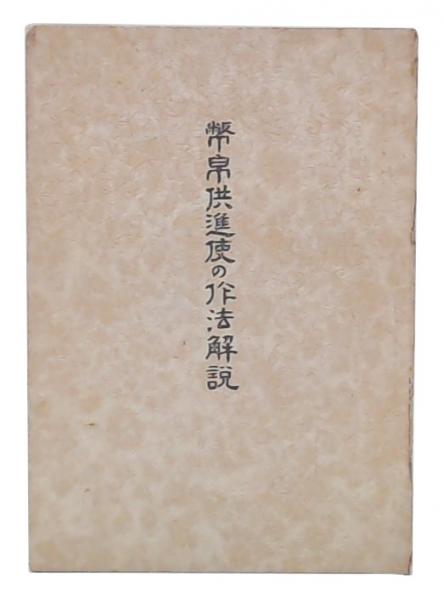 幣帛供進使の作法解説